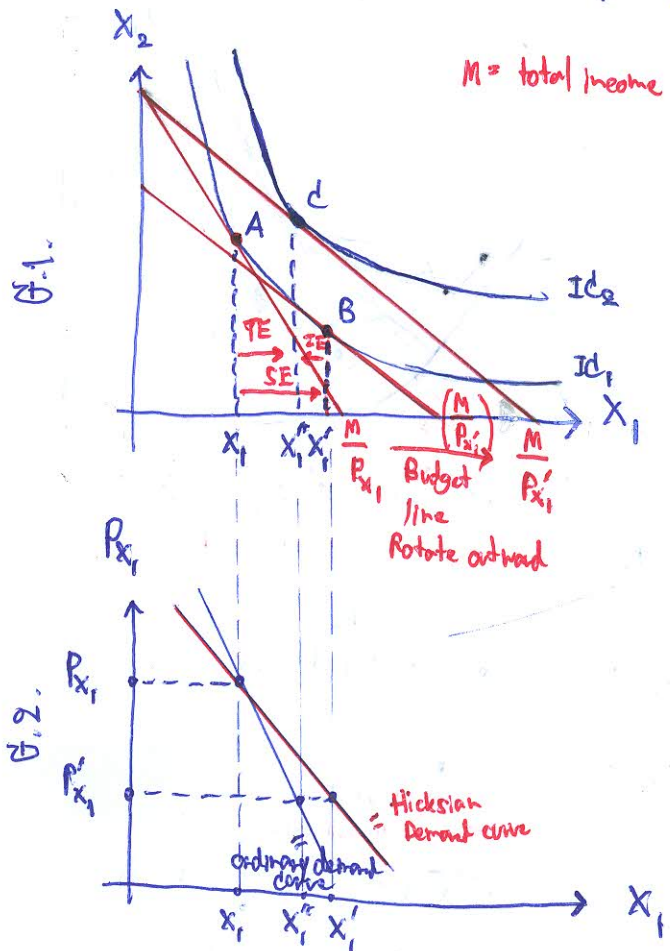 X₂
M = total income
G.1.
C
A
B
IC₂
TE
IE
SE
IC₁
X₁
X₁ X₁" X₁'
M/Pₓ₁
(M/Pₓ₁')
M/Pₓ₁'
Budget
line
Rotate outward
Pₓ₁
Pₓ₁
G.2.
Pₓ₁'
= Hicksian
Demand curve
=
ordinary demand
curve
X₁ X₁" X₁'
X₁